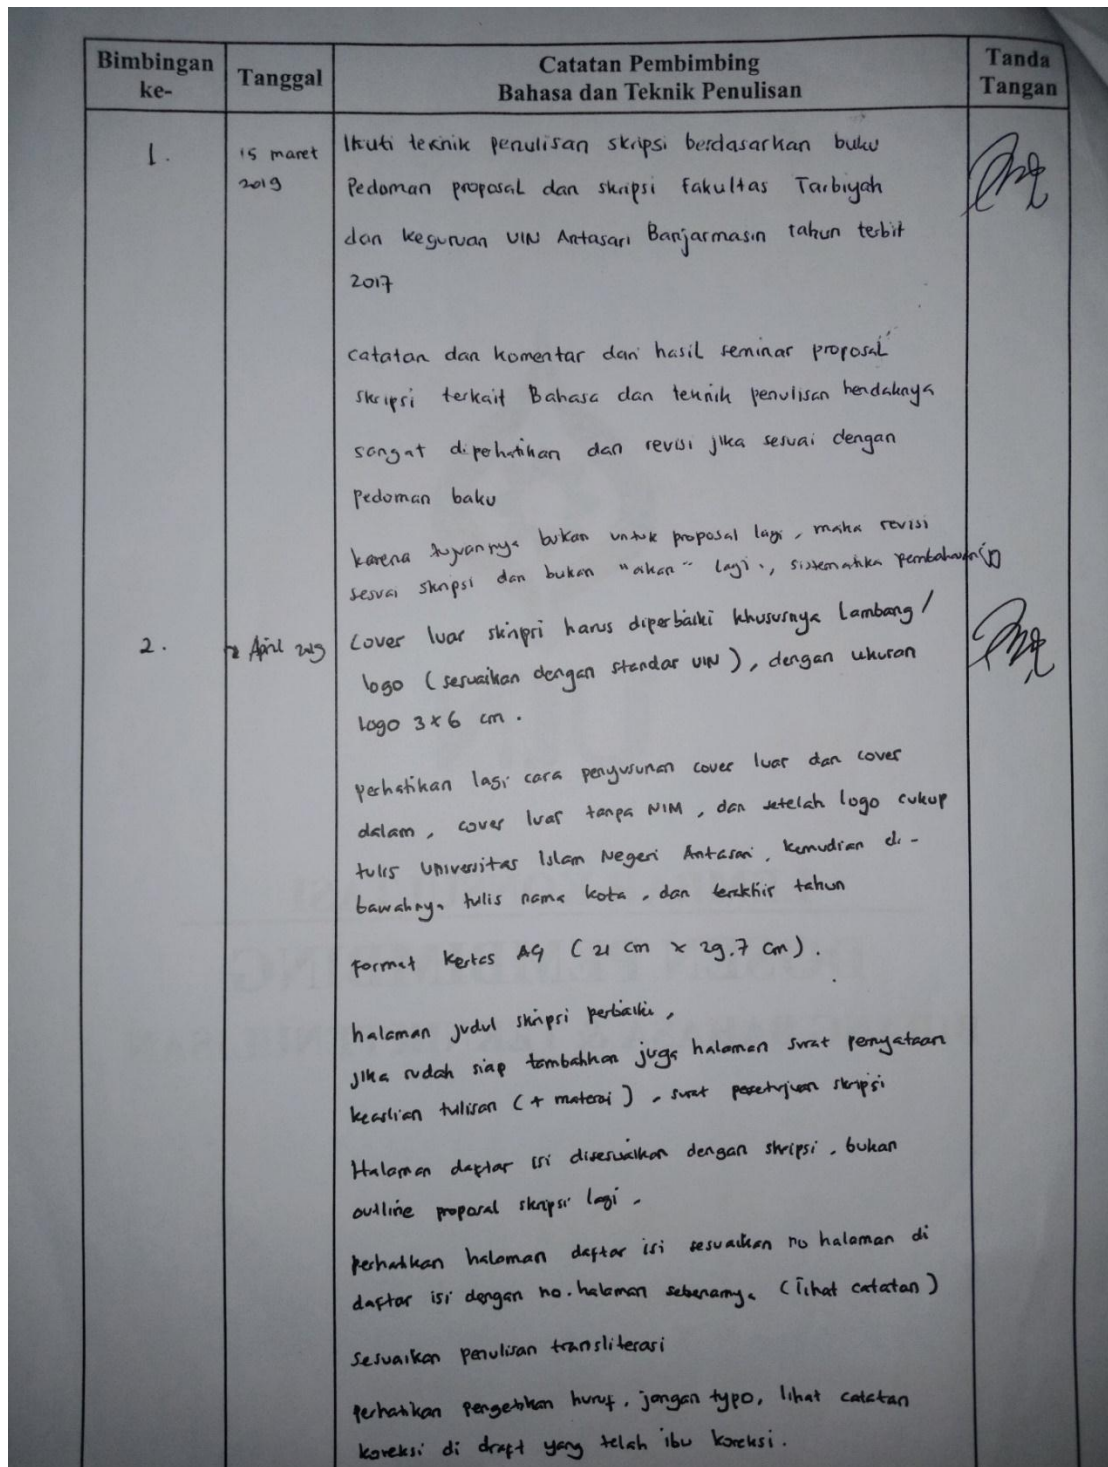 Bimbingan ke-
Tanggal
Catatan Pembimbing
Bahasa dan Teknik Penulisan
Tanda Tangan
1.
15 maret
2019
Ikuti teknik penulisan skripsi berdasarkan buku
Pedoman proposal dan skripsi Fakultas Tarbiyah
dan keguruan UIN Antasari Banjarmasin tahun terbit
2017
catatan dan komentar dari hasil seminar proposal
skripsi terkait Bahasa dan teknik penulisan hendaknya
sangat dipehatikan dan revisi jika sesuai dengan
pedoman baku
karena tujuannya bukan untuk proposal lagi, maka revisi
sesuai skripsi dan bukan "akan" lagi., sistematika pembahasan
2.
April 2019
Cover luar skripsi harus diperbaiki khususnya Lambang/
logo (sesuaikan dengan standar UIN), dengan ukuran
logo 3x6 cm.
perhatikan lagi cara penyusunan cover luar dan cover
dalam, cover luar tanpa NIM, dan setelah logo cukup
tulis Universitas Islam Negeri Antasari, kemudian di-
bawahnya tulis nama kota, dan terakhir tahun
Format kertas A4 (21 cm x 29.7 cm).
halaman judul skripsi perbaiki,
jika sudah siap tambahkan juga halaman surat pernyataan
keaslian tulisan (+ materai), surat persetujuan skripsi
Halaman daftar isi disesuaikan dengan skripsi, bukan
outline proposal skripsi lagi.
perhatikan halaman daftar isi sesuaikan no halaman di
daftar isi dengan no. halaman sebenarnya (lihat catatan)
Sesuaikan penulisan transliterasi
perhatikan pengetikan huruf, jangan typo, lihat catatan
koreksi di draft yang telah ibu koreksi.